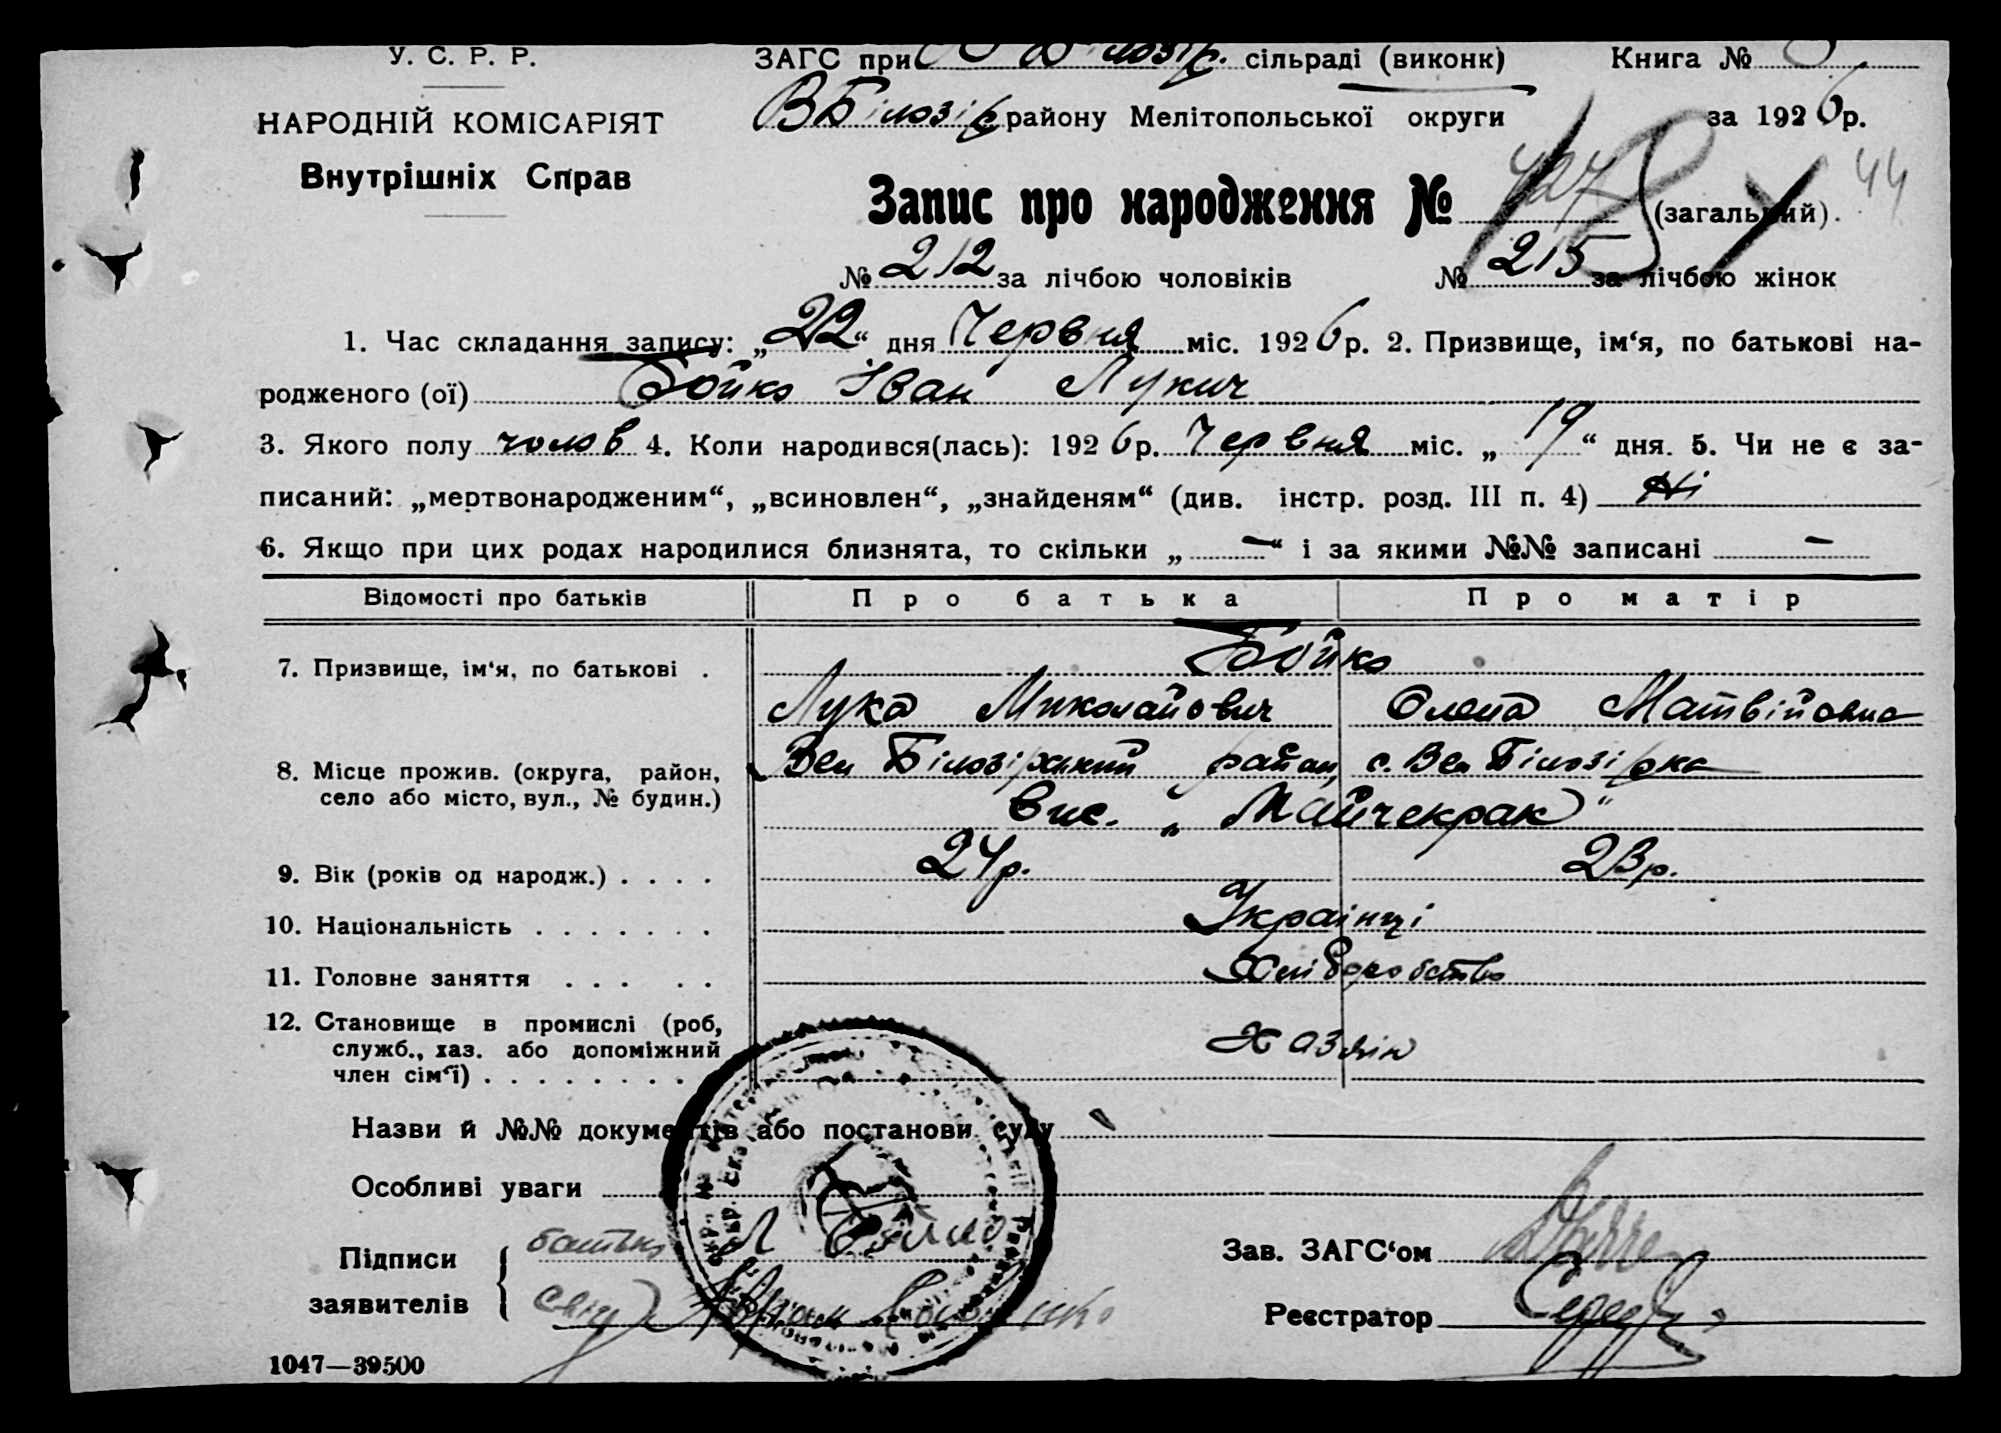 У. С. Р. Р.
ЗАГС при сільраді (виконк) Книга №
НАРОДНІЙ КОМІСАРІЯТ
Внутрішніх Справ
ВБілозір району Мелітопольської округи за 1926р.
44
Запис про народження № 427 (загальний).
№ 212 за лічбою чоловіків № 215 за лічбою жінок
1. Час складання запису: „22“ дня Червня міс. 1926р. 2. Призвище, ім‘я, по батькові на-
родженого (ої) Бойко Іван Лукич
3. Якого полу чолов 4. Коли народився(лась): 1926р. Червня міс. „19“ дня. 5. Чи не є за-
писаний: „мертвонародженим“, „всиновлен“, „знайденям“ (див. інстр. розд. III п. 4) Ні
6. Якщо при цих родах народилися близнята, то скільки „ – “ і за якими №№ записані –
Відомості про батьків Про батька Про матір
7. Призвище, ім‘я, по батькові . Бойко
Лука Миколайович Олена Матвійовна
8. Місце прожив. (округа, район, село або місто, вул., № будин.) Вел Білозірський район с. Вел Білозірка
вис. „Майчекрак“
9. Вік (років од народж.) . . . . 24р. 23р.
10. Національність . . . . . . . Українці
11. Головне заняття . . . . . Хліборобство
12. Становище в промислі (роб,
служб., хаз. або допоміжний
член сім‘ї) . . . . . . . . Хазяїн
Назви й №№ документів або постанови суду
Особливі уваги
Підписи
заявителів
батько Л Бойко
Зав. ЗАГС‘ом
Реєстратор
1047—39500